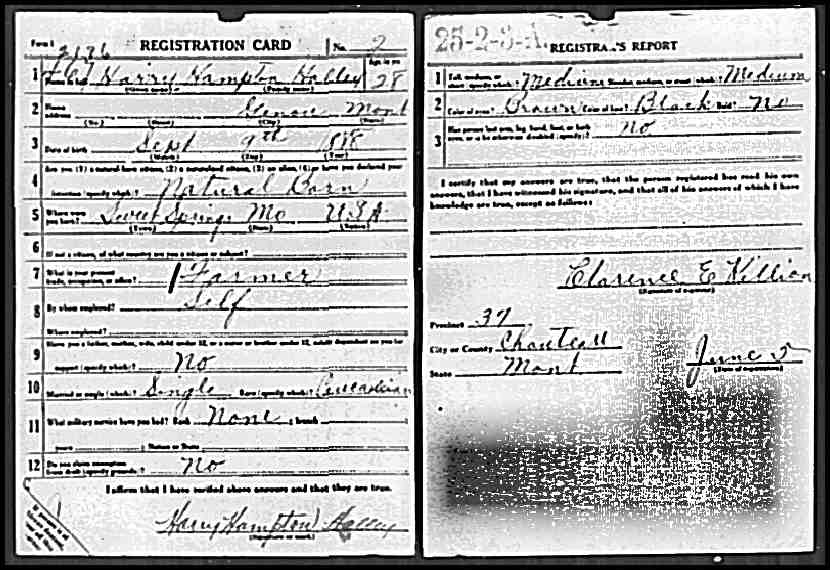 Form 1 REGISTRATION CARD No. 2
Age, in yrs
1 Harry Hampton Halley 28
(Given name) (Family name)
2 Home address Genou Mont
(No.) (Street) (City) (State)
3 Date of birth Sept 9th
(Month) (Day) (Year)
Are you (1) a natural-born citizen, (2) a naturalized citizen, (3) an alien, (4) or have you declared your
4 intention (specify which)? Natural Born
5 Where were you born? Sweet Springs Mo U.S.A.
(Town) (State) (Nation)
6 If not a citizen, of what country are you a citizen or subject?
7 What is your present trade, occupation, or office? Farmer
8 By whom employed? Self
Where employed?
9 Have you a father, mother, wife, child under 12, or a sister or brother under 12, solely dependent on you for
support (specify which)? No
10 Married or single (which)? Single Race (specify which)? Caucasian
11 What military service have you had? Rank None ; branch
years ; Nation or State
12 Do you claim exemption from draft (specify grounds)? No
I affirm that I have verified above answers and that they are true.
Harry Hampton Halley
(Signature or mark)
25-2-3-A. REGISTRAR'S REPORT
1 Tall, medium, or short (specify which)? Medium Slender, medium, or stout (which)? Medium
2 Color of eyes? Brown Color of hair? Black Bald? No
3 Has person lost arm, leg, hand, foot, or both eyes, or is he otherwise disabled (specify)? No
I certify that my answers are true, that the person registered has read his own
answers, that I have witnessed his signature, and that all of his answers of which I have
knowledge are true, except as follows:
Clarence E Killion
(Signature of registrar)
Precinct 37
City or County Chouteau
State Mont
June 5
(Date of registration)